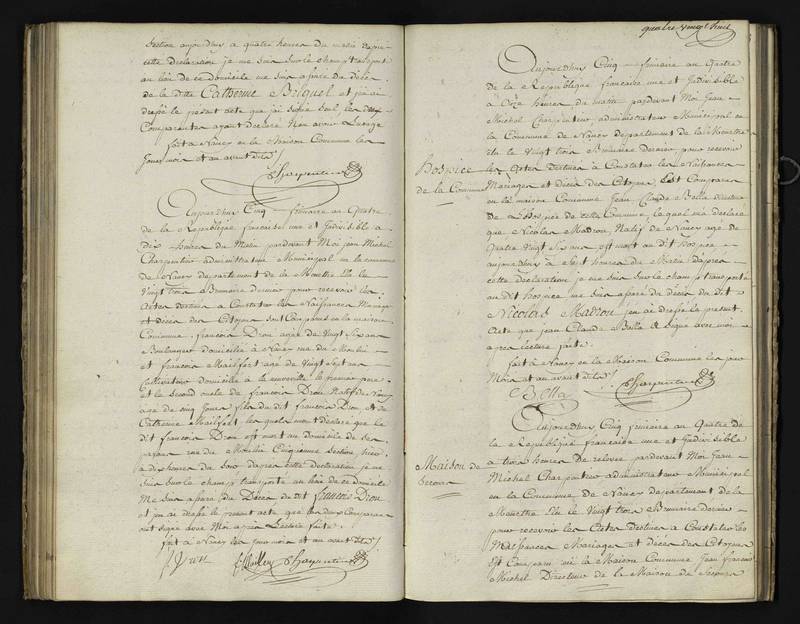 Section aujourd'huy a quatre heures du matin d'après
cette declaration je me suis sur le champ transporté
au lieu de ce Domicile me suis assuré du décès
de la ditte Catherine Briquel et j'en ai
dressé le présent acte que j'ai signé seul les deux
Comparantes ayant declaré n'en avoir l'usage
fait à Nancy en la Maison Commune les
Jour mois et an avant dits
Charpentier
Aujourd'huy Cinq frimaire an Quatre
de la Republique française une et Indivisible à
Dix heures du Matin pardevant Moi jean Michel
Charpentier administrateur Municipal en la commune
de Nancy departement de la Meurthe Elu le
Vingt trois Brumaire dernier pour recevoir les
Actes destinés à Constater les Naissances Mariages
et décès des Citoyens sont Comparus en la maison
Commune françois Drou agé de Vingt Six ans
Boulanger domicilié à Nancy rue du Moulin
et francois Mailfert agé de Vingt Sept ans
Cultivateur domicilié à la neuveville le premier pere
et le second oncle de françois Drou Natif de Nancy
age de cinq Jours fils du dit francois Drou et de
Catherine Mailfert, les quels m'ont déclaré que le
dit francois Drou est mort au domicile de ses
parens rue du Moulin Cinquieme Section hier
à dix heures du soir d'après cette déclaration je me
suis sur le champ transporté au lieu de ce domicile
Me suis assuré du Décès du dit françois Drou
et j'en ai dressé le présent acte que les deux Comparans
ont signé avec Moi après Lecture faite
fait à Nancy les jour mois et an avant dits
Charpentier
quatre vingt huit
Aujourd'huy Cinq frimaire an Quatre
de la Republique française une et Indivisible
à Onze heures du matin pardevant Moi Jean
Michel Charpentier administrateur Municipal en
la Commune de Nancy departement de la Meurthe
Elu le Vingt trois Brumaire dernier pour recevoir
Hospice les Actes Destinés à Constater les Naissances
de la Commune Mariages et décès des Citoyens Est Comparu
en la maison Commune Jean Claude Bolla directeur
de L'hospice de cette Commune, le quel m'a declaré
que Nicolas Madrou Natif de Nancy agé de
Quatre Vingt Six ans est mort au dit hospice
aujourd'huy à Sept heures du Matin d'après
cette déclaration je me suis sur le champ transporté
au dit hospice me suis assuré du décès du dit
Nicolas Madrou j'en ai dressé le présent
Acte que jean Claude Bolla a signé avec moi
apres lecture faite
fait à Nancy en la Maison Commune les jour
Mois et an avant dits
Charpentier
Bolla
Aujourd'huy Cinq frimaire an Quatre de
la Republique française une et Indivisible
Maison de à trois heures de relevée pardevant Moi Jean
Secours Michel Charpentier administrateur Municipal
en la Commune de Nancy Departement de la
Meurthe Elu le Vingt trois Brumaire dernier
pour recevoir les Actes destinés à Constater les
Naissances Mariages et décès des Citoyens
Est Comparu en la Maison Commune Jean francois
Michel Directeur de la Maison de Secours